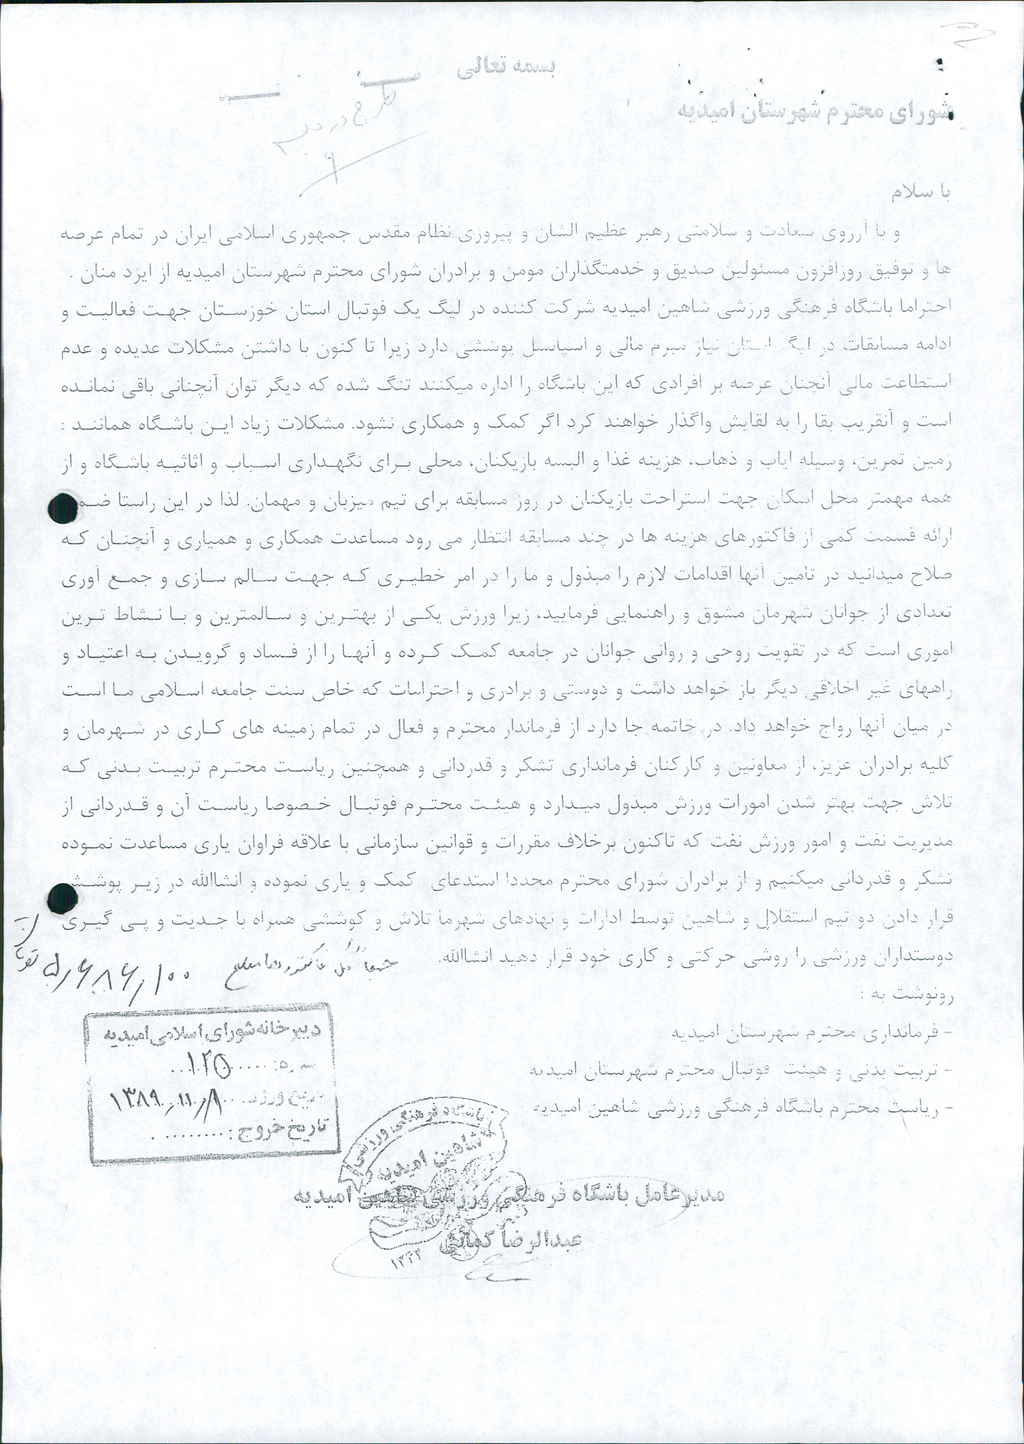 بسمه تعالی
شورای محترم شهرستان امیدیه
با سلام
و با آرزوی سعادت و سلامتی رهبر عظیم الشان و پیروزی نظام مقدس جمهوری اسلامی ایران در تمام عرصه
ها و توفیق روزافزون مسئولین صدیق و خدمتگذاران مومن و برادران شورای محترم شهرستان امیدیه از ایزد منان .
احتراما باشگاه فرهنگی ورزشی شاهین امیدیه شرکت کننده در لیگ یک فوتبال استان خوزستان جهت فعالیت و
ادامه مسابقات در لیگ استان نیاز مبرم مالی و اسپانسر پوششی دارد زیرا تا کنون با داشتن مشکلات عدیده و عدم
استطاعت مالی آنچنان عرصه بر افرادی که این باشگاه را اداره میکنند تنگ شده که دیگر توان آنچنانی باقی نمانده
است و آنقریب بقا را به لقایش واگذار خواهند کرد اگر کمک و همکاری نشود. مشکلات زیاد این باشگاه همانند :
زمین تمرین، وسیله ایاب و ذهاب، هزینه غذا و البسه بازیکنان، محلی برای نگهداری اسباب و اثاثیه باشگاه و از
همه مهمتر محل اسکان جهت استراحت بازیکنان در روز مسابقه برای تیم میزبان و مهمان. لذا در این راستا ضمن
ارائه قسمت کمی از فاکتورهای هزینه ها در چند مسابقه انتظار می رود مساعدت همکاری و همیاری و آنچنان که
صلاح میدانید در تامین آنها اقدامات لازم را مبذول و ما را در امر خطیری که جهت سالم سازی و جمع آوری
تعدادی از جوانان شهرمان مشوق و راهنمایی فرمایید، زیرا ورزش یکی از بهترین و سالمترین و با نشاط ترین
اموری است که در تقویت روحی و روانی جوانان در جامعه کمک کرده و آنها را از فساد و گرویدن به اعتیاد و
راههای غیر اخلاقی دیگر باز خواهد داشت و دوستی و برادری و احترامات که خاص سنت جامعه اسلامی ما است
در میان آنها رواج خواهد داد. در خاتمه جا دارد از فرماندار محترم و فعال در تمام زمینه های کاری در شهرمان و
کلیه برادران عزیز، از معاونین و کارکنان فرمانداری تشکر و قدردانی و همچنین ریاست محترم تربیت بدنی که
تلاش جهت بهتر شدن امورات ورزش مبذول میدارد و هیئت محترم فوتبال خصوصا ریاست آن و قدردانی از
مدیریت نفت و امور ورزش نفت که تاکنون برخلاف مقررات و قوانین سازمانی با علاقه فراوان یاری مساعدت نموده
تشکر و قدردانی میکنیم و از برادران شورای محترم مجددا استدعای کمک و یاری نموده و انشاالله در زیر پوشش
قرار دادن دو تیم استقلال و شاهین توسط ادارات و نهادهای شهرما تلاش و کوششی همراه با جدیت و پی گیری
دوستداران ورزشی را روشی حرکتی و کاری خود قرار دهید انشاالله.
فاکتور مبلغ ۵/۶۸۶/۱۰۰ تومان
رونوشت به :
- فرمانداری محترم شهرستان امیدیه
- تربیت بدنی و هیئت فوتبال محترم شهرستان امیدیه
- ریاست محترم باشگاه فرهنگی ورزشی شاهین امیدیه
دبیرخانه شورای اسلامی امیدیه
شماره: ۱۲۵
تاریخ ورود: ۱۳۸۹/۱۱/۸
تاریخ خروج :
باشگاه فرهنگی ورزشی
شاهین امیدیه
مدیرعامل باشگاه فرهنگی ورزشی شاهین امیدیه
عبدالرضا